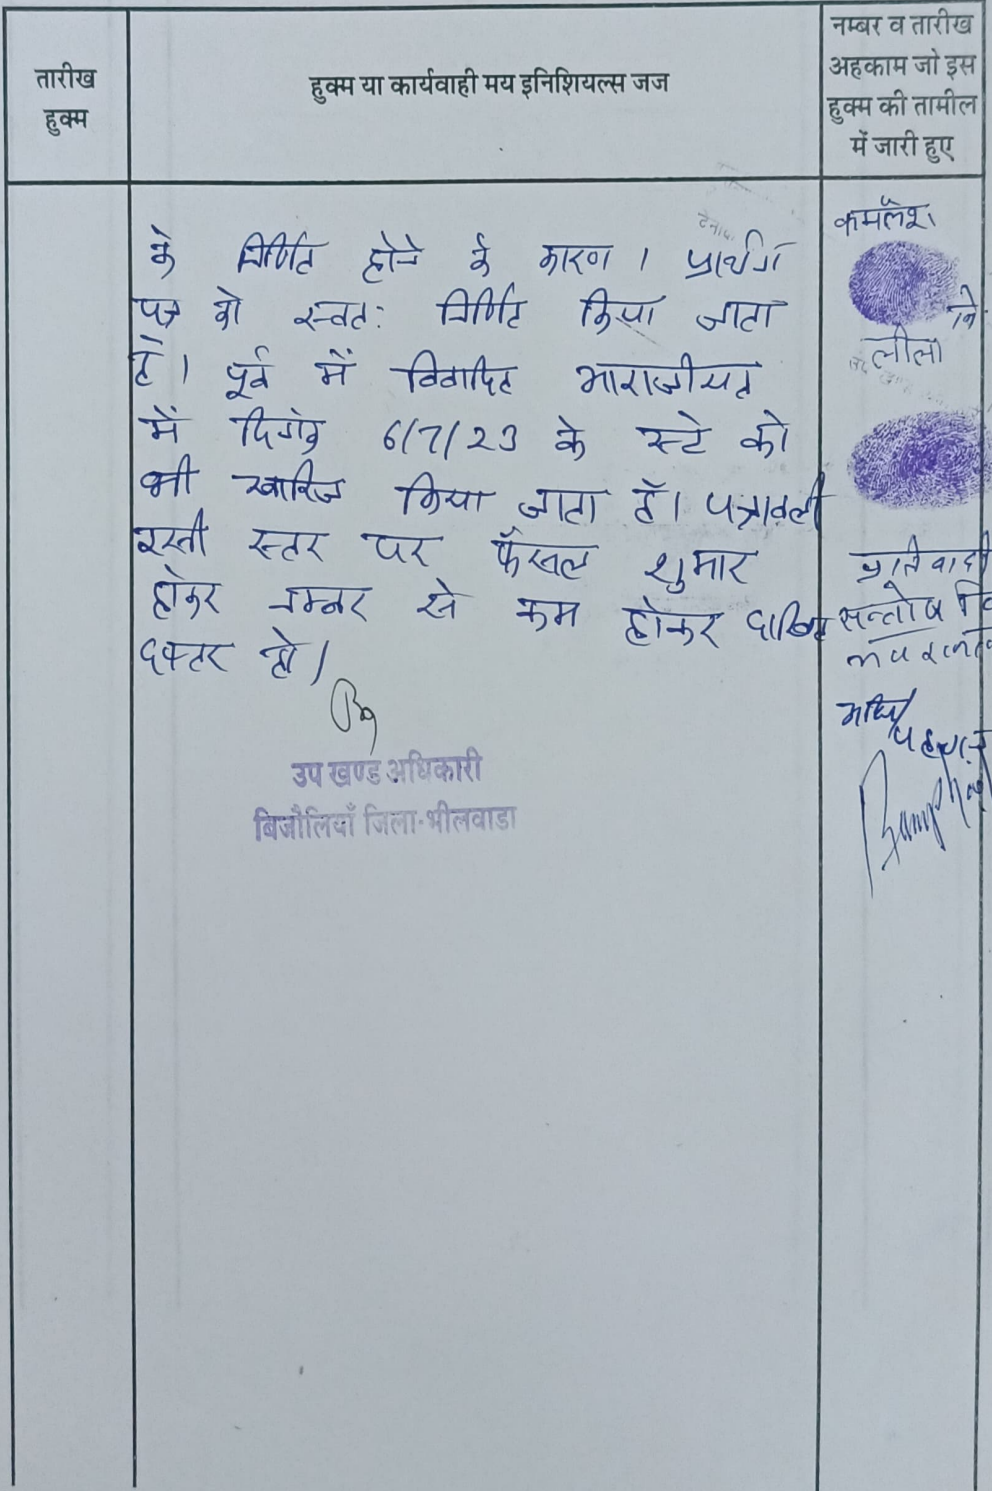 तारीख
हुक्म
हुक्म या कार्यवाही मय इनिशियल्स जज
नम्बर व तारीख
अहकाम जो इस
हुक्म की तामील
में जारी हुए
के निर्णित होने के कारण । प्रार्थना
पत्र को स्वतः निर्णित किया जाता
है। पूर्व में विवादित आराजीयत
में दिनांक 6/7/23 के स्टे को
भी खारिज किया जाता है। पत्रावली
इसी स्तर पर फैसल शुमार
होकर नम्बर से कम होकर दाखिल
दफ्तर हो।
उप खण्ड अधिकारी
बिजौलियाँ जिला-भीलवाडा
कमलेश
नि.
लीला
प्रतिवादी
सन्तोष